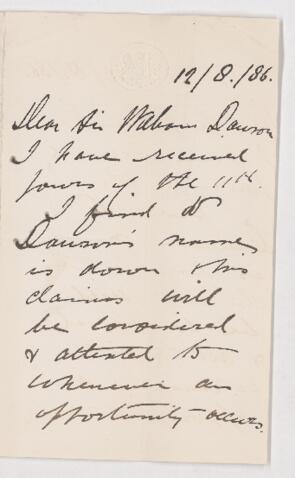 12/8./86.
Dear Sir William Dawson
I have received
yours of the 11th.
I find Dr
Dawson's name
is down & his
claims will
be considered
& attended to
whenever an
opportunity occurs.